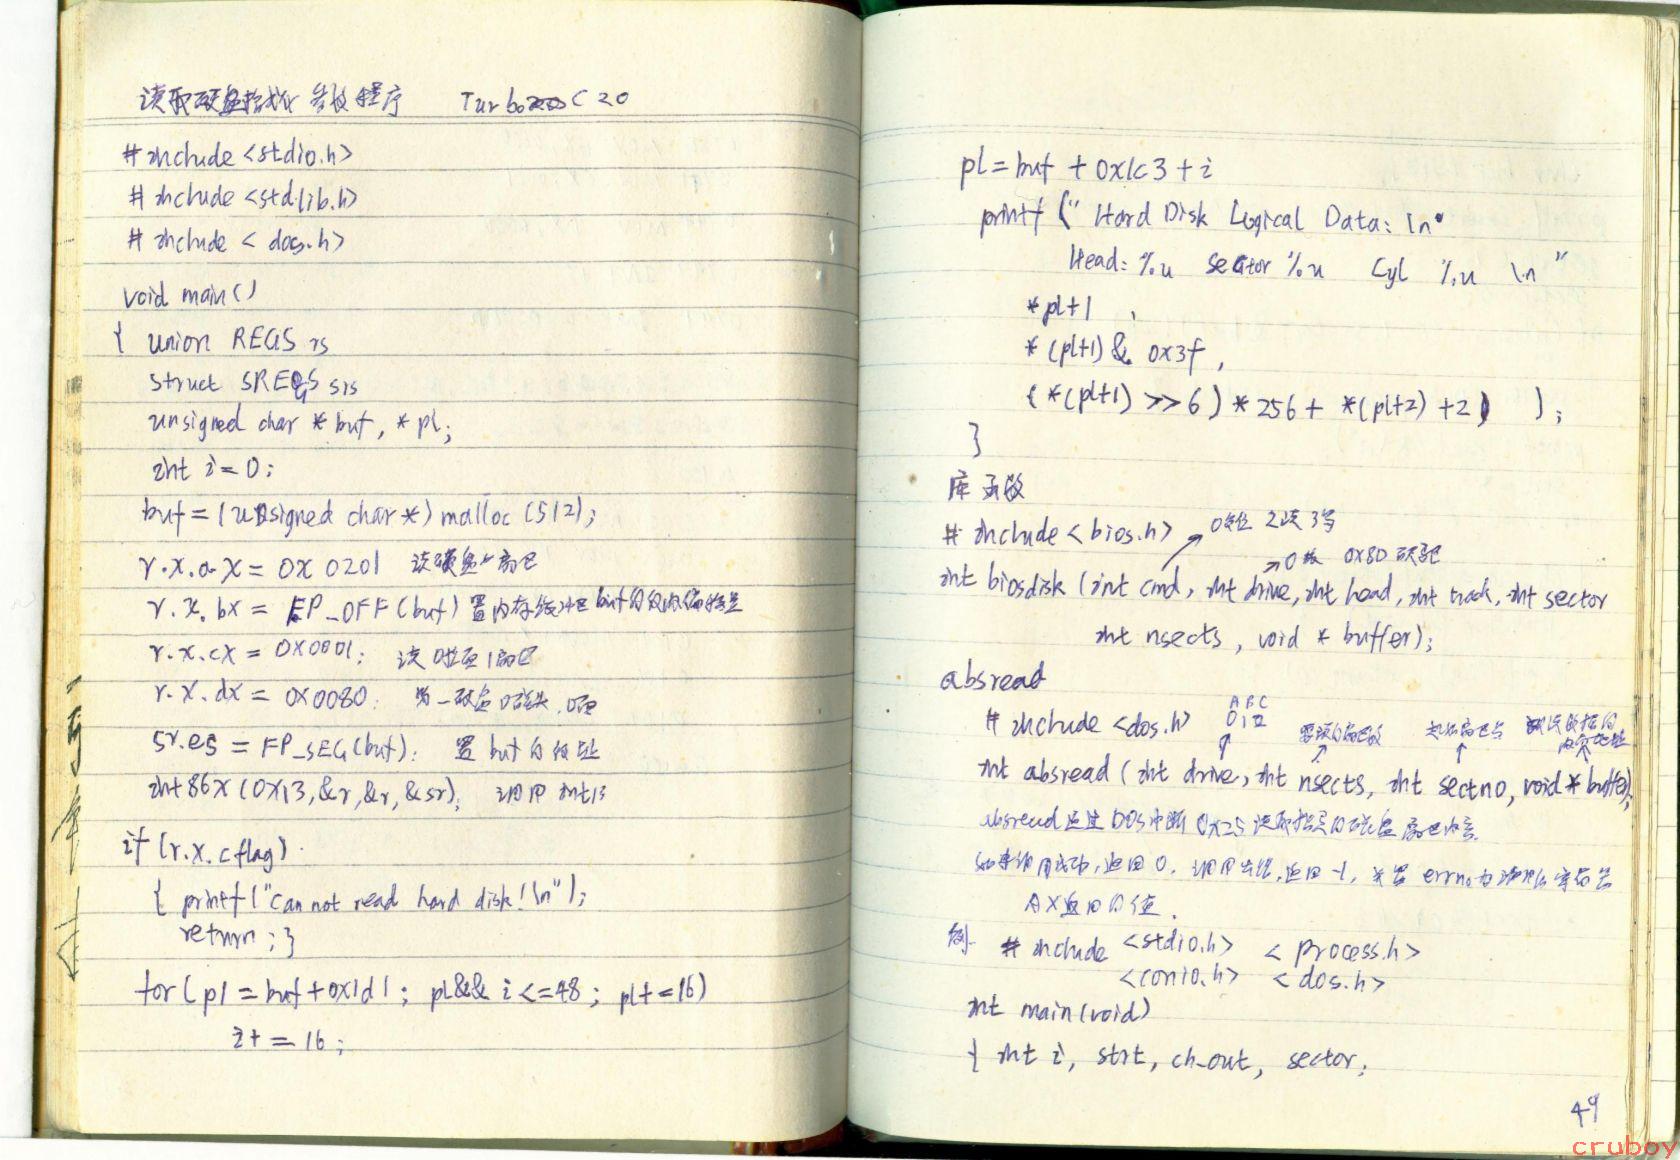 读取硬盘 参数程序 Turbo C 2.0
#include <stdio.h>
#include <stdlib.h>
#include < dos.h>
void main()
{ union REGS rs
struct SREGS sis
unsigned char * buf, * pl;
int i = 0;
buf = (unsigned char *) malloc (512);
r.x.ax = 0x0201 读硬盘1扇区
r.x.bx = FP_OFF(buf) 置内存缓冲区buf的段内偏移量
r.x.cx = 0x0001; 读0磁道1扇区
r.x.dx = 0x0080; 第一硬盘0磁头
sr.es = FP_SEG(buf); 置buf的段址
int86x(0x13,&r,&r,&sr); 调用int13
if (r.x.cflag)
{ printf("Can not read hard disk!\n");
return; }
for(pl = buf+0x1d1; pl&& i<=48; pl+=16)
i+ = 16;
pl=buf + 0x1c3 + i
printf (" Hard Disk Logical Data: \n"
Head: %u Sector %u Cyl %u \n "
*pl+1 ,
*(pl+1) & 0x3f,
(*(pl+1) >>6) * 256 + *(pl+2) +2) );
}
库函数
#include < bios.h> 0复位 2读 3写
0软 0x80硬盘
int biosdisk (int cmd, int drive, int head, int track, int sector
int nsects, void * buffer);
absread
#include <dos.h>
A B C
0 1 2 要读的扇区数 起始扇区号
int absread (int drive, int nsects, int sectno, void * buffer);
absread通过DOS中断0x25读取指定的磁盘扇区内容.
如果调用成功,返回0. 调用出错,返回-1, 并置errno为
AX返回的值.
例 #include <stdio.h> < process.h>
<conio.h> < dos.h>
int main(void)
{ int i, strt, ch_out, sector;
49
cruboy